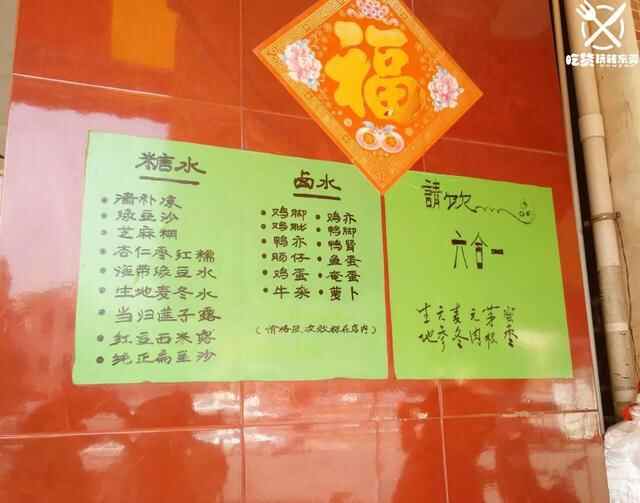 吃货玩转东莞
福
糖水
清补凉
绿豆沙
芝麻糊
杏仁枣红糯
海带绿豆水
生地麦冬水
当归莲子露
红豆西米露
纯正扁豆沙
卤水
鸡脚 鸡亦
鸡肶 鸭脚
鸭亦 鸭肾
肠仔 鱼蛋
鸡蛋 奄蛋
牛杂 萝卜
請饮
六合一
生地
元参
麦冬
元肉
茅根
蜜枣